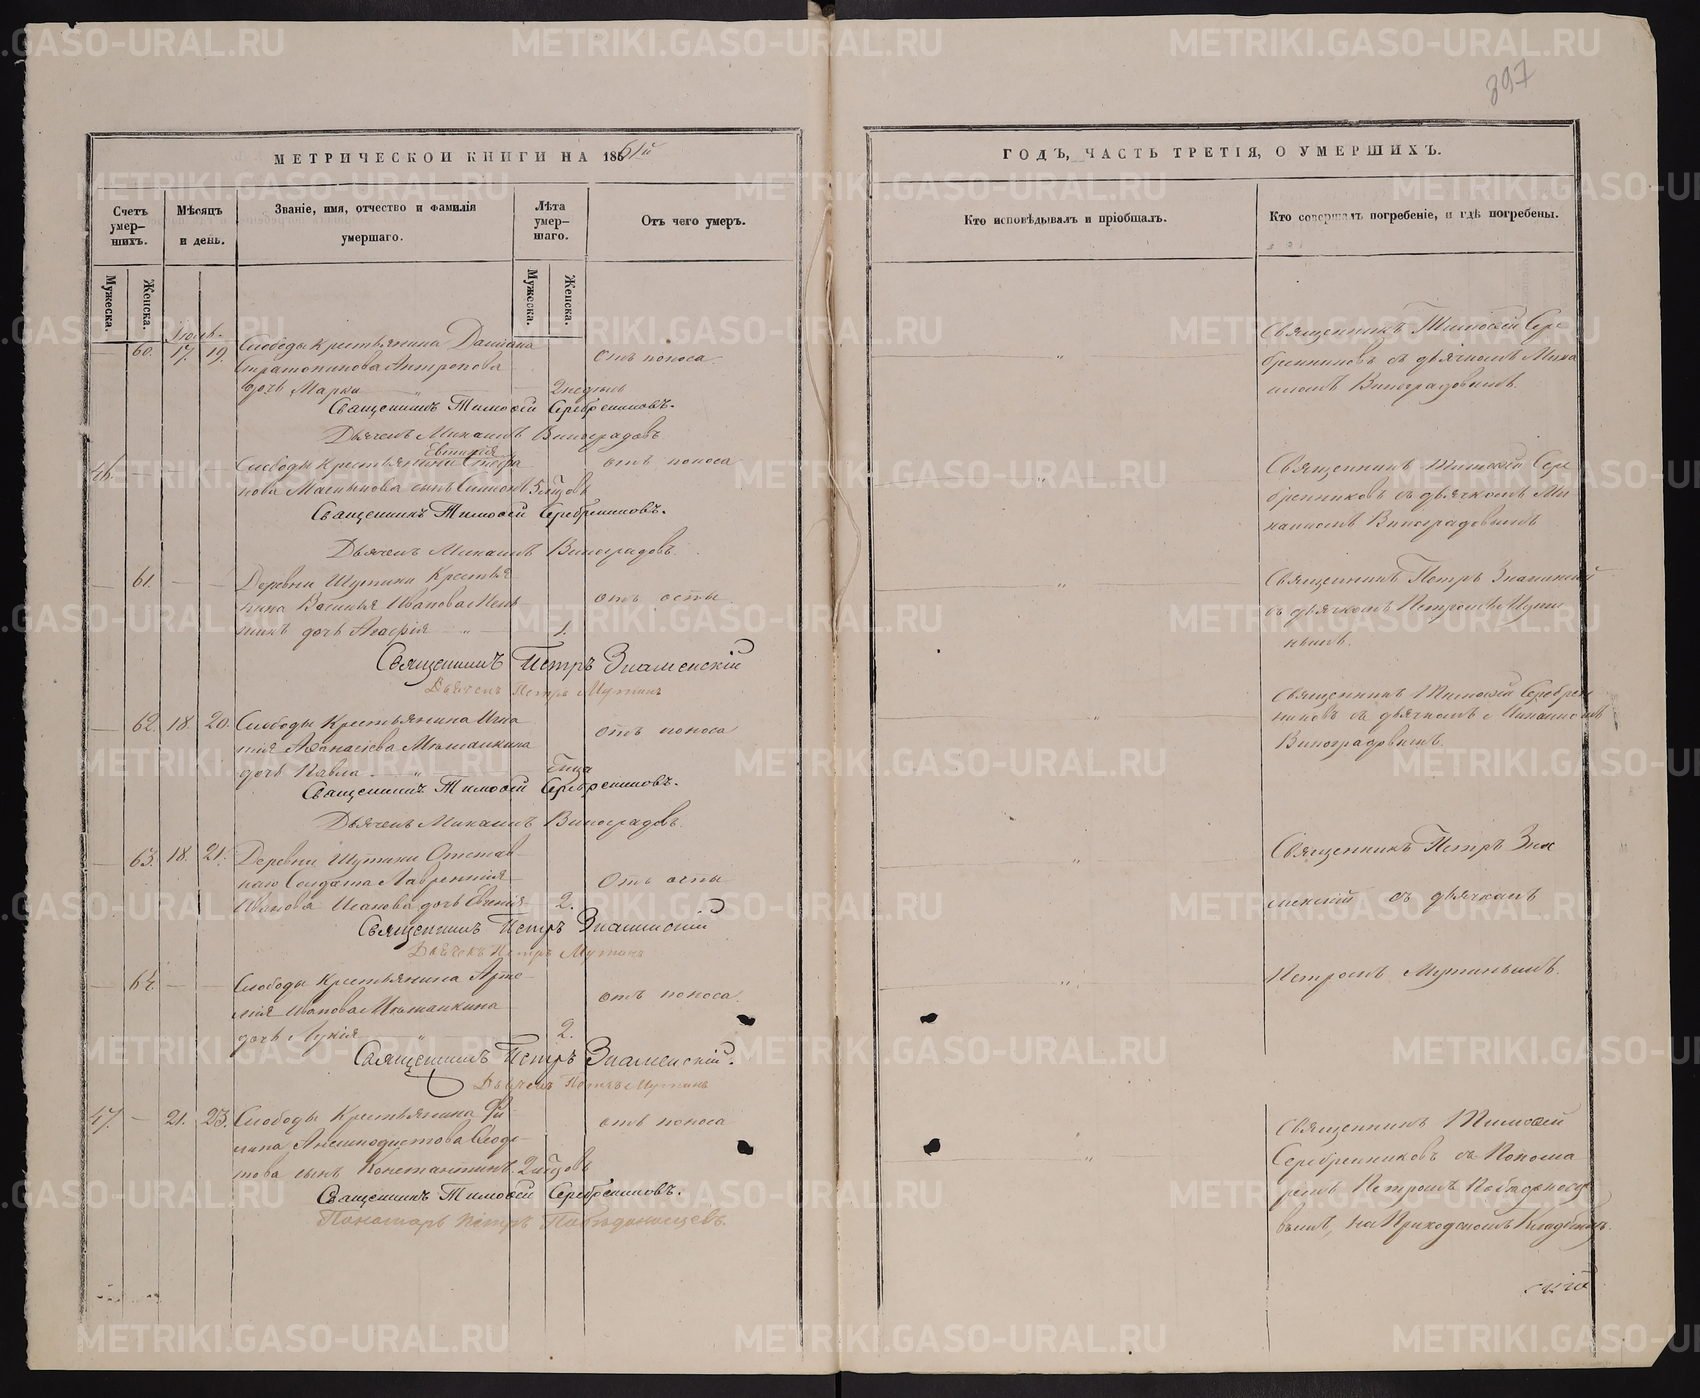 397
МЕТРИЧЕСКОИ КНИГИ НА 1861й
ГОДЪ, ЧАСТЬ ТРЕТІЯ, О УМЕРШИХЪ.
Счетъ умер-шихъ.
Мѣсяцъ и день.
Званіе, имя, отчество и фамилія умершаго.
Лѣта умер-шаго.
Отъ чего умеръ.
Кто исповѣдывалъ и пріобщалъ.
Кто совершалъ погребеніе, и гдѣ погребены.
Мужеска.
Женска.
Мужеска.
Женска.
Июль.
60. 17. 19. Слободы крестьянина
Антропова
дочь Марѳа 2 недѣль
отъ поноса
Священникъ Тимоѳей Серебренниковъ.
Дьячекъ Михаилъ Виноградовъ.
Священникъ Тимоѳей Сере
бренниковъ съ дьячкомъ Миха
иломъ Виноградовымъ.
46. Слободы крестьянина Евтихія
сынъ Симеонъ 5 мѣсяцовъ
отъ поноса
Священникъ Тимоѳей Серебренниковъ.
Дьячекъ Михаилъ Виноградовъ.
Священникъ Тимоѳей Сере
бренниковъ съ дьячкомъ Ми
хаиломъ Виноградовымъ
61. Деревни Шутихи Крестья
нина Василья Иванова
дочь 1.
отъ оспы
Священникъ Петръ Знаменскій
Дьячекъ Петръ Мутинъ
Священникъ Петръ Знаменскій
съ дьячкомъ Петромъ Мути
нымъ.
62. 18. 20. Слободы Крестьянина Игна
тія Аѳанасіева
дочь Павла
отъ поноса
Священникъ Тимоѳей Серебренниковъ.
Дьячекъ Михаилъ Виноградовъ.
Священникъ Тимоѳей Серебрен
никовъ съ дьячкомъ Михаиломъ
Виноградовымъ.
63. 18. 21. Деревни Шутихи Отстав
наго Солдата Лаврентія
Иванова дочь Евгенія 2.
Отъ оспы
Священникъ Петръ Знаменскій
Дьячекъ Петръ Мутинъ
Священникъ Петръ Зна
менскій съ дьячкомъ
Петромъ Мутинымъ.
64. Слободы крестьянина Арте
мія Иванова
дочь Лукія 2.
отъ поноса.
Священникъ Петръ Знаменскій.
Дьячекъ Петръ Мутинъ
47. 21. 23. Слободы Крестьянина Фи
липа Анемподистова Ѳедо
това сынъ Константинъ 2 мѣсяцовъ
отъ поноса
Священникъ Тимоѳей Серебренниковъ.
Пономарь Петръ Побѣдоносцевъ.
Священникъ Тимоѳей
Серебренниковъ съ Понома
ремъ Петромъ Побѣдоносце
вымъ, на Приходскомъ Кладбищѣ.
METRIKI.GASO-URAL.RU